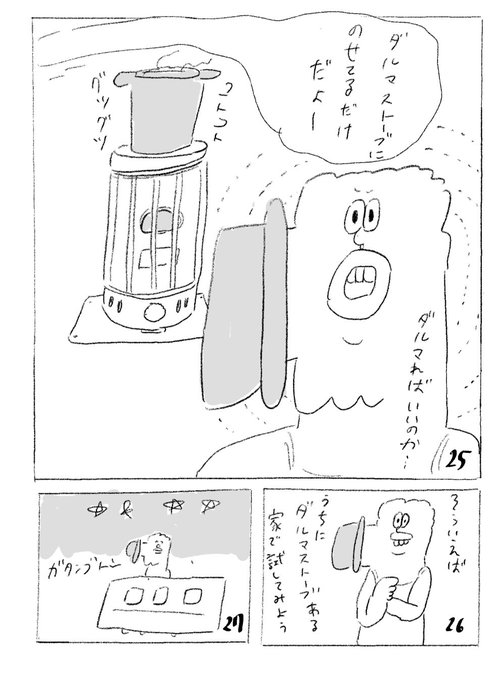 ダルマストーブに
のせてるだけ
だよー
コトコト
グツグツ
ダルマればいいのか…
25
そういえば
うちに
ダルマストーブある
家で試してみよう
26
ガタンゴトン
27